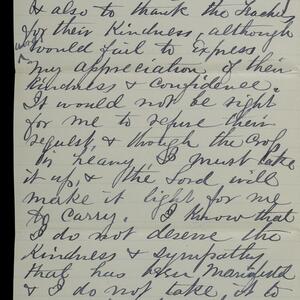 & also to thank the Teachers
for their Kindness, although
words would fail to express
my appreciation of their
kindness & confidence.
It would not be right
for me to refuse their
request, & though the Cross
is heavy, I must take
it up, & the Lord will
make it light for me
to carry. I know that
I do not deserve the
Kindness & sympathy
that has been Manifested
& I do not take it to